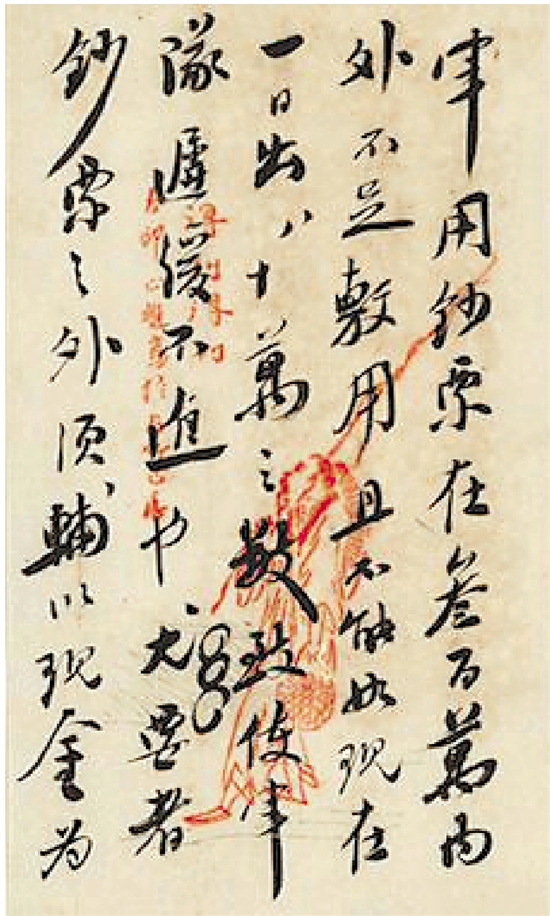 軍用鈔票在叁百萬內
外不足敷用且不能如現在
一日出八十萬之數致使軍
隊遲緩不進也尤要者
鈔票之外須輔以現金為